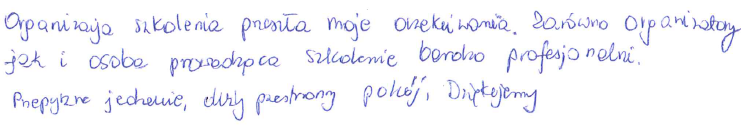 Organizacja szkolenia przeszła moje oczekiwania. Zarówno organizatorzy
jak i osoba prowadząca szkolenie bardzo profesjonalni.
Przepyszne jedzenie, duży przestronny pokój, Dziękujemy